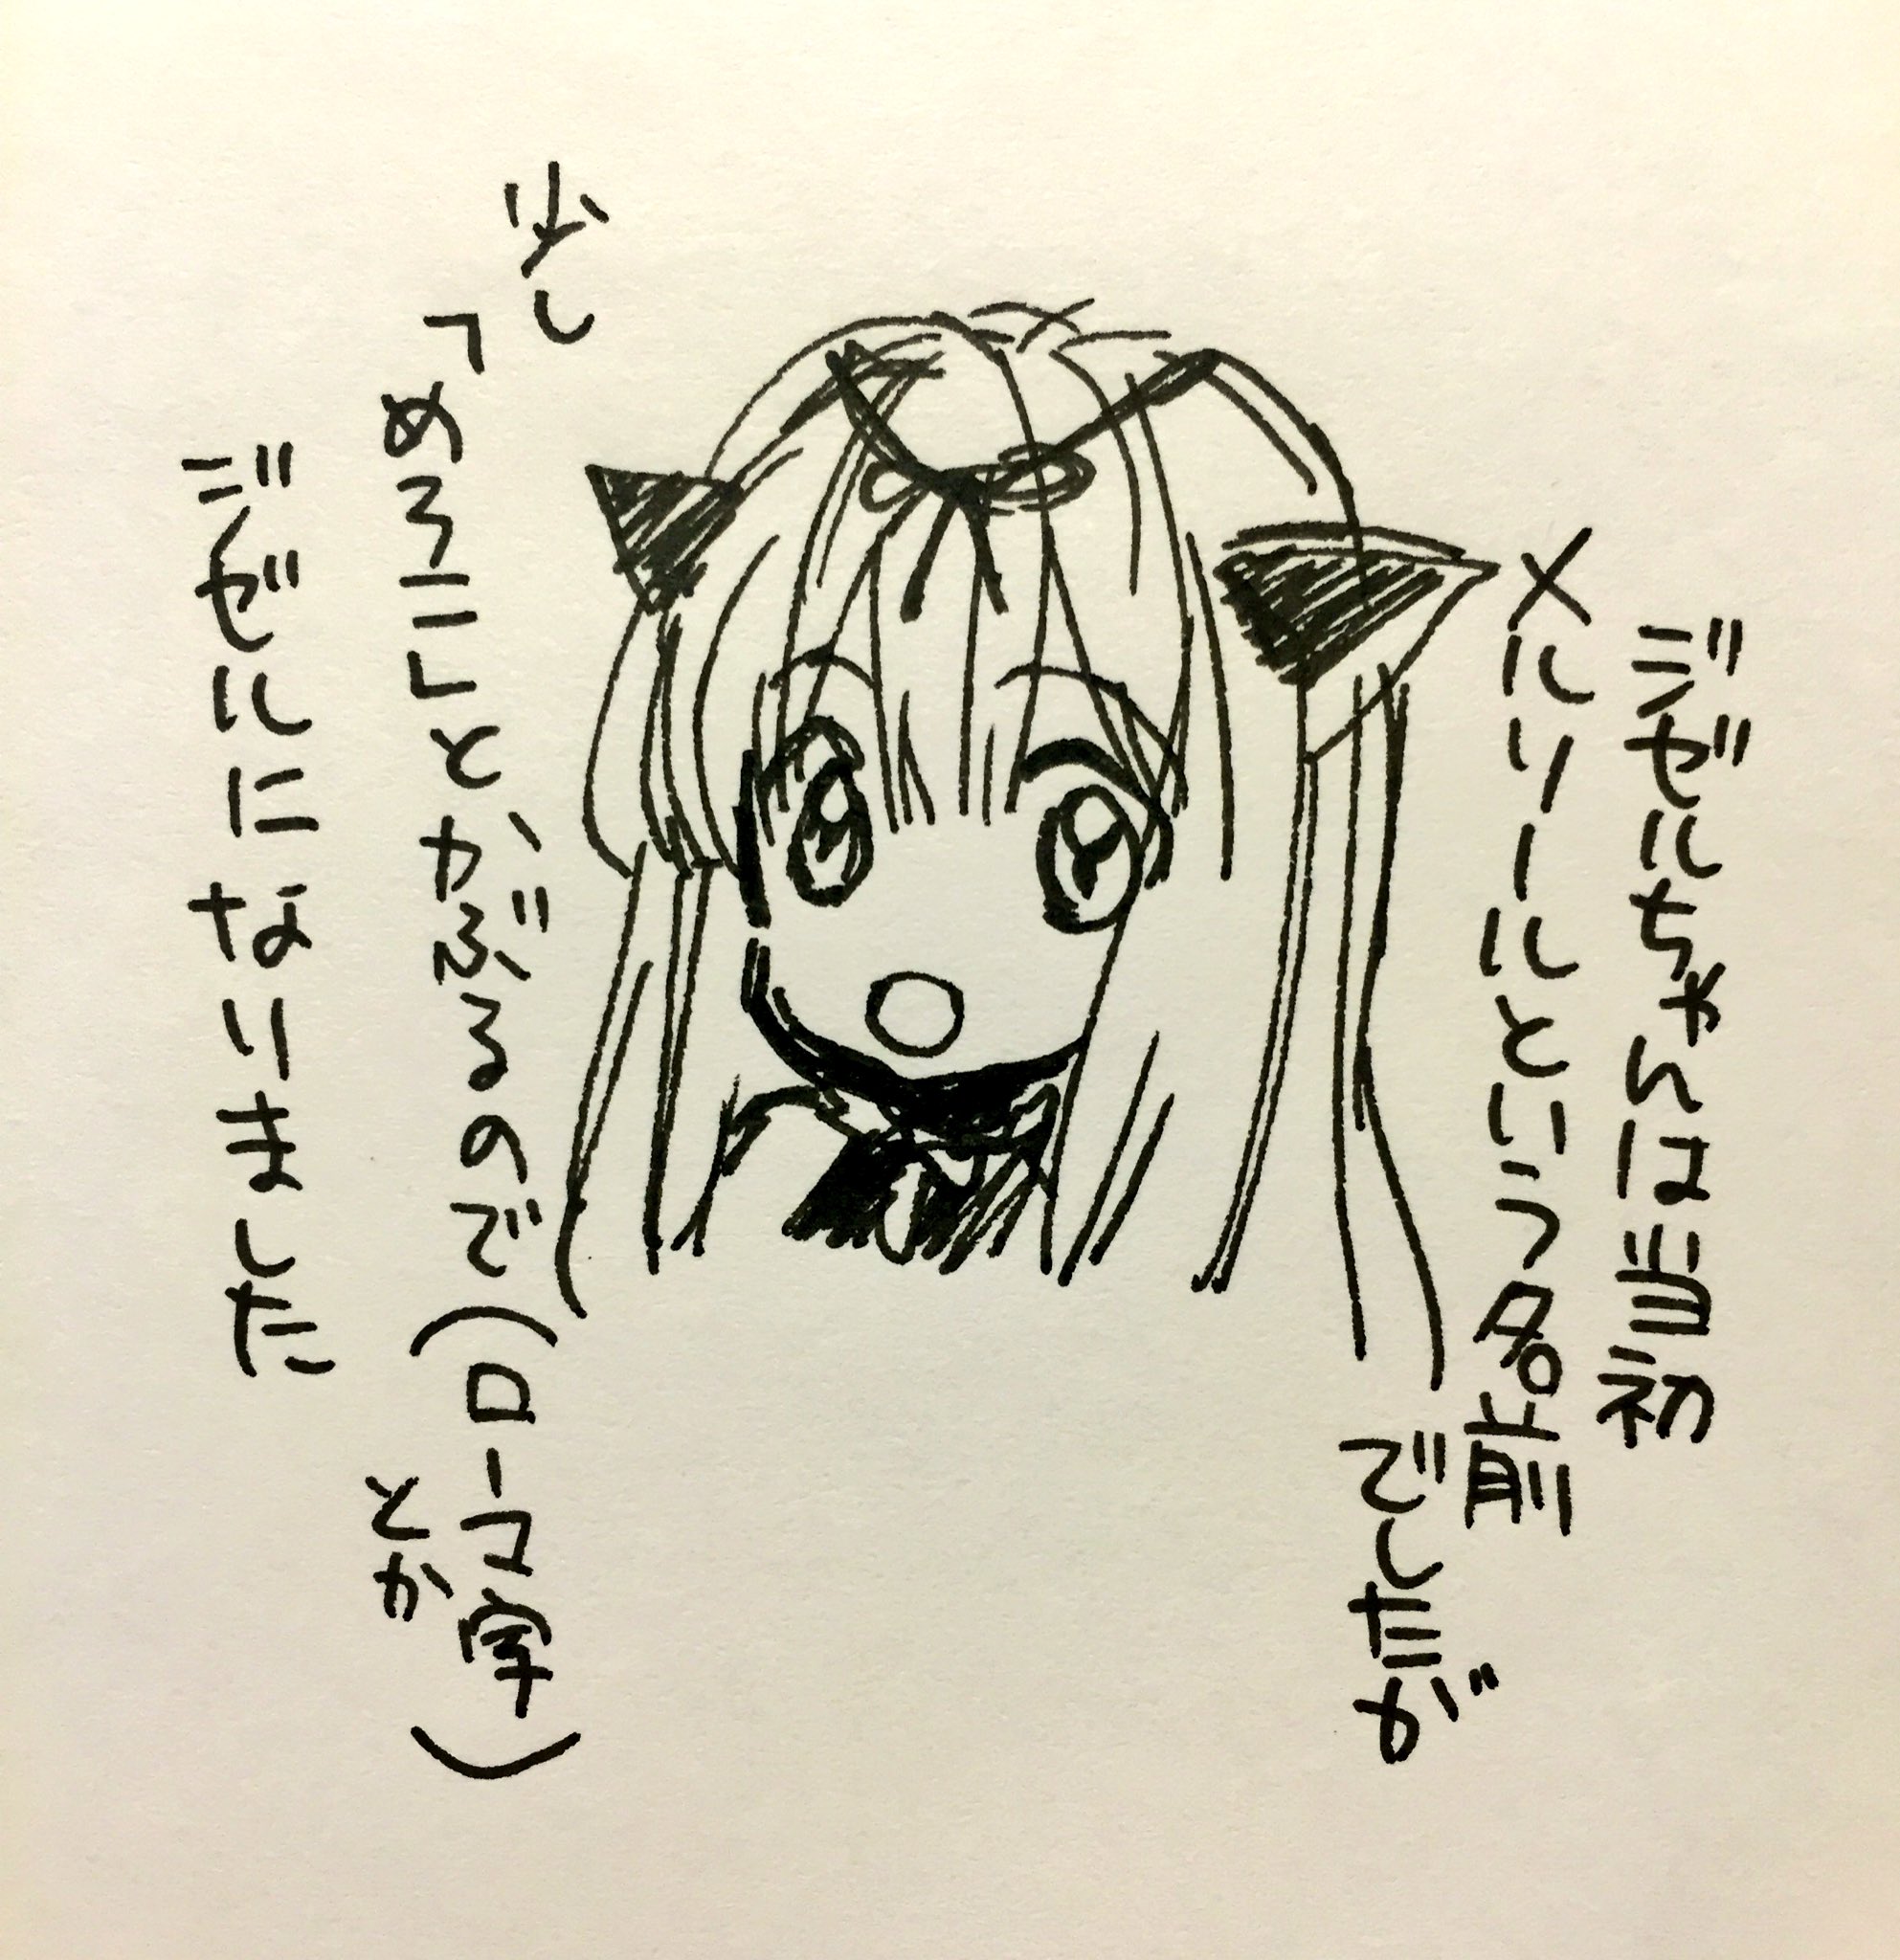 ジゼルちゃんは当初
メルリールという名前
でしたが
少し
「めろこ」と、かぶるので(ローマ字
とか)
ジゼルになりました